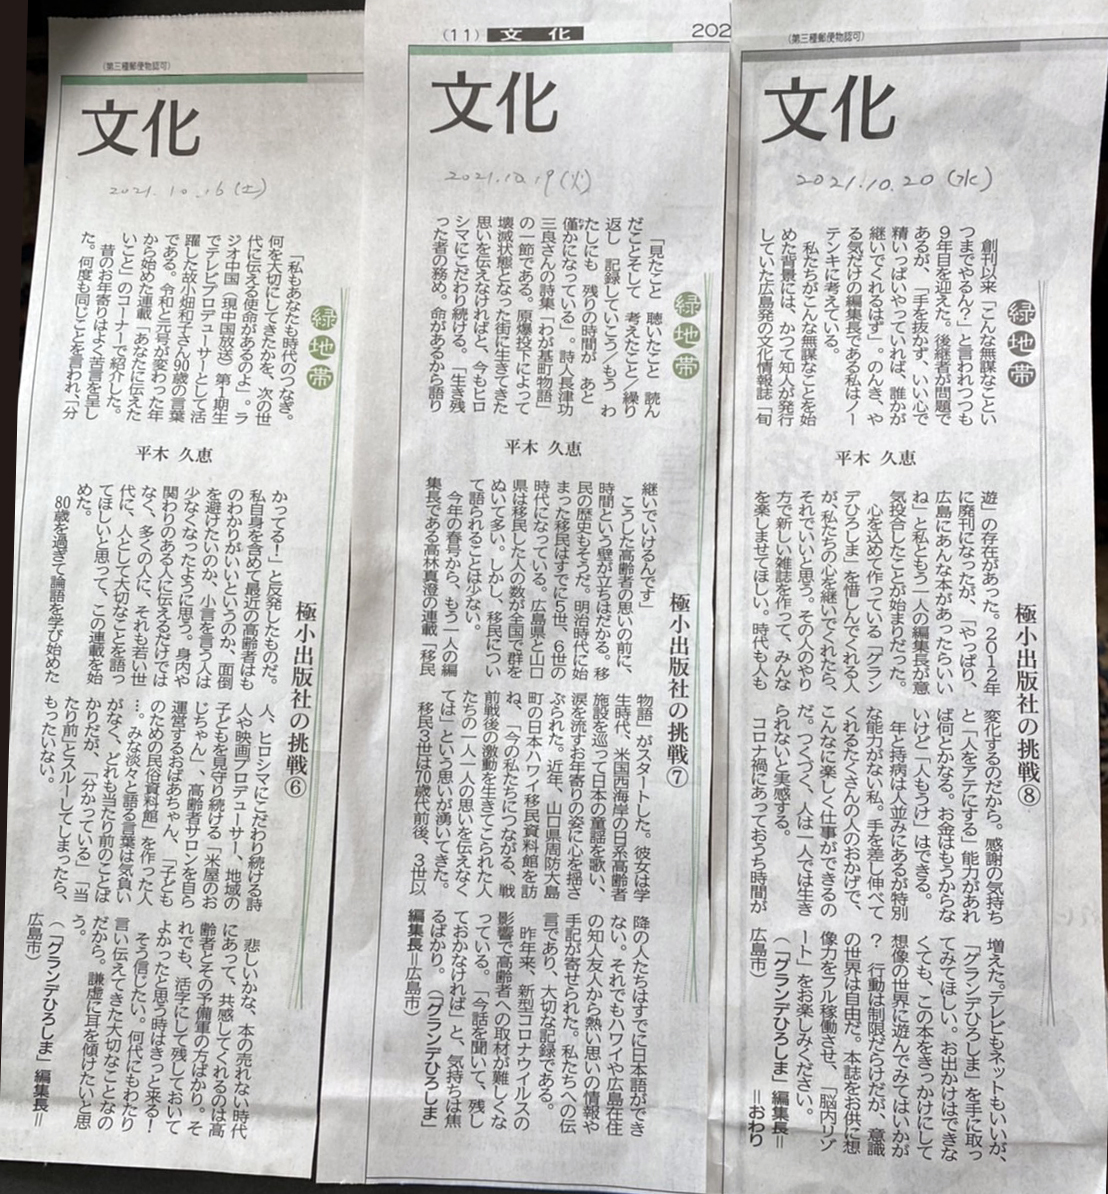 (第三種郵便物認可)
文化
2021.10.16(土)
緑地帯
「私もあなたも時代のつなぎ。
何を大切にしてきたかを、次の世
代に伝える使命があるのよ」。ラ
ジオ中国(現中国放送)第1期生
でテレビプロデューサーとして活
躍した故小畑和子さん90歳の言葉
である。令和と元号が変わった年
から始めた連載「あなたに伝えた
いこと」のコーナーで紹介した。
昔のお年寄りはよく苦言を呈し
た。何度も同じことを言われ、「分
平木 久恵
極小出版社の挑戦⑥
かってる!」と反発したものだ。
私自身を含めて最近の高齢者はも
のわかりがいいというのか、面倒
を避けたいのか、小言を言う人は
少なくなったように思う。身内や
関わりのある人に伝えるだけでは
なく、多くの人に、それも若い世
代に、人として大切なことを語っ
てほしいと思って、この連載を始
めた。
80歳を過ぎて論語を学び始めた
人、ヒロシマにこだわり続ける詩
人や映画プロデューサー、地域の
子どもを見守り続ける「米屋のお
じちゃん」、高齢者サロンを自ら
運営するおばあちゃん、「子ども
のための民俗資料館」を作った人
…。みな淡々と語る言葉は気負い
がなく、どれも当たり前のことば
かりだが、「分かっている」「当
たり前」とスルーしてしまったら、
もったいない。
悲しいかな、本の売れない時代
にあって、共感してくれるのは高
齢者とその予備軍の方ばかり。そ
れでも、活字にして残しておいて
よかったと思う時はきっと来る!
そう信じたい。何代にもわたり
言い伝えてきた大切なことなの
だから。謙虚に耳を傾けたいと思
う。
(「グランデひろしま」編集長=
広島市)
(11) 文化
202
文化
2021.10.19(火)
緑地帯
「見たこと 聴いたこと 読ん
だことそして 考えたこと/繰り
返し 記録していこう/もう わ
たしにも 残りの時間が あと
僅かになっている」。詩人長津功
三良さんの詩集「わが基町物語」
の一節である。原爆投下によって
壊滅状態となった街に生きてきた
思いを伝えなければと、今もヒロ
シマにこだわり続ける。「生き残
った者の務め。命があるから語り
平木 久恵
極小出版社の挑戦⑦
継いでいけるんです」
こうした高齢者の思いの前に、
時間という壁が立ちはだかる。移
民の歴史もそうだ。明治時代に始
まった移民はすでに5世、6世の
時代になっている。広島県と山口
県は移民した人の数が全国で群を
ぬいて多い。しかし、移民につい
て語られることは少ない。
今年の春号から、もう一人の編
集長である高林真澄の連載「移民
物語」がスタートした。彼女は学
生時代、米国西海岸の日系高齢者
施設を巡って日本の童謡を歌い、
涙を流すお年寄りの姿に心を揺さ
ぶられた。近年、山口県周防大島
町の日本ハワイ移民資料館を訪
ね、「今の私たちにつながる、戦
前戦後の激動を生きてこられた人
たちの一人一人の思いを伝えなく
ては」という思いが湧いてきた。
移民3世は70歳代前後、3世以
降の人たちはすでに日本語ができ
ない。それでもハワイや広島在住
の知人友人から熱い思いの情報や
手記が寄せられた。私たちへの伝
言であり、大切な記録である。
昨年来、新型コロナウイルスの
影響で高齢者への取材が難しくな
っている。「今話を聞いて、残し
ておかなければ」と、気持ちは焦
るばかり。(「グランデひろしま」
編集長=広島市)
(第三種郵便物認可)
文化
2021.10.20(水)
緑地帯
創刊以来「こんな無謀なことい
つまでやるん?」と言われつつも
9年目を迎えた。後継者が問題で
あるが、「手を抜かず、いい心で
精いっぱいやっていれば、誰かが
継いでくれるはず」。のんき、や
る気だけの編集長である私はノー
テンキに考えている。
私たちがこんな無謀なことを始
めた背景には、かつて知人が発行
していた広島発の文化情報誌「旬
平木 久恵
極小出版社の挑戦⑧
遊」の存在があった。2012年
に廃刊になったが、「やっぱり、
広島にあんな本があったらいい
ね」と私ともう一人の編集長が意
気投合したことが始まりだった。
心を込めて作っている「グラン
デひろしま」を惜しんでくれる人
が、私たちの心を継いでくれたら、
それでいいと思う。その人のやり
方で新しい雑誌を作って、みんな
を楽しませてほしい。時代も人も
変化するのだから。感謝の気持ち
と「人をアテにする」能力があれ
ば何とかなる。お金はもうからな
いけど「人もうけ」はできる。
年と持病は人並みにあるが特別
な能力がない私。手を差し伸べて
くれるたくさんの人のおかげで、
こんなに楽しく仕事ができるの
だ。つくづく、人は一人では生き
られないと実感する。
コロナ禍にあっておうち時間が
増えた。テレビもネットもいいが、
「グランデひろしま」を手に取っ
てみてほしい。お出かけはできな
くても、この本をきっかけにして
想像の世界に遊んでみてはいかが
? 行動は制限だらけだが、意識
の世界は自由だ。本誌をお供に想
像力をフル稼働させ、「脳内リゾ
ート」をお楽しみください。
(「グランデひろしま」編集長=
広島市) =おわり